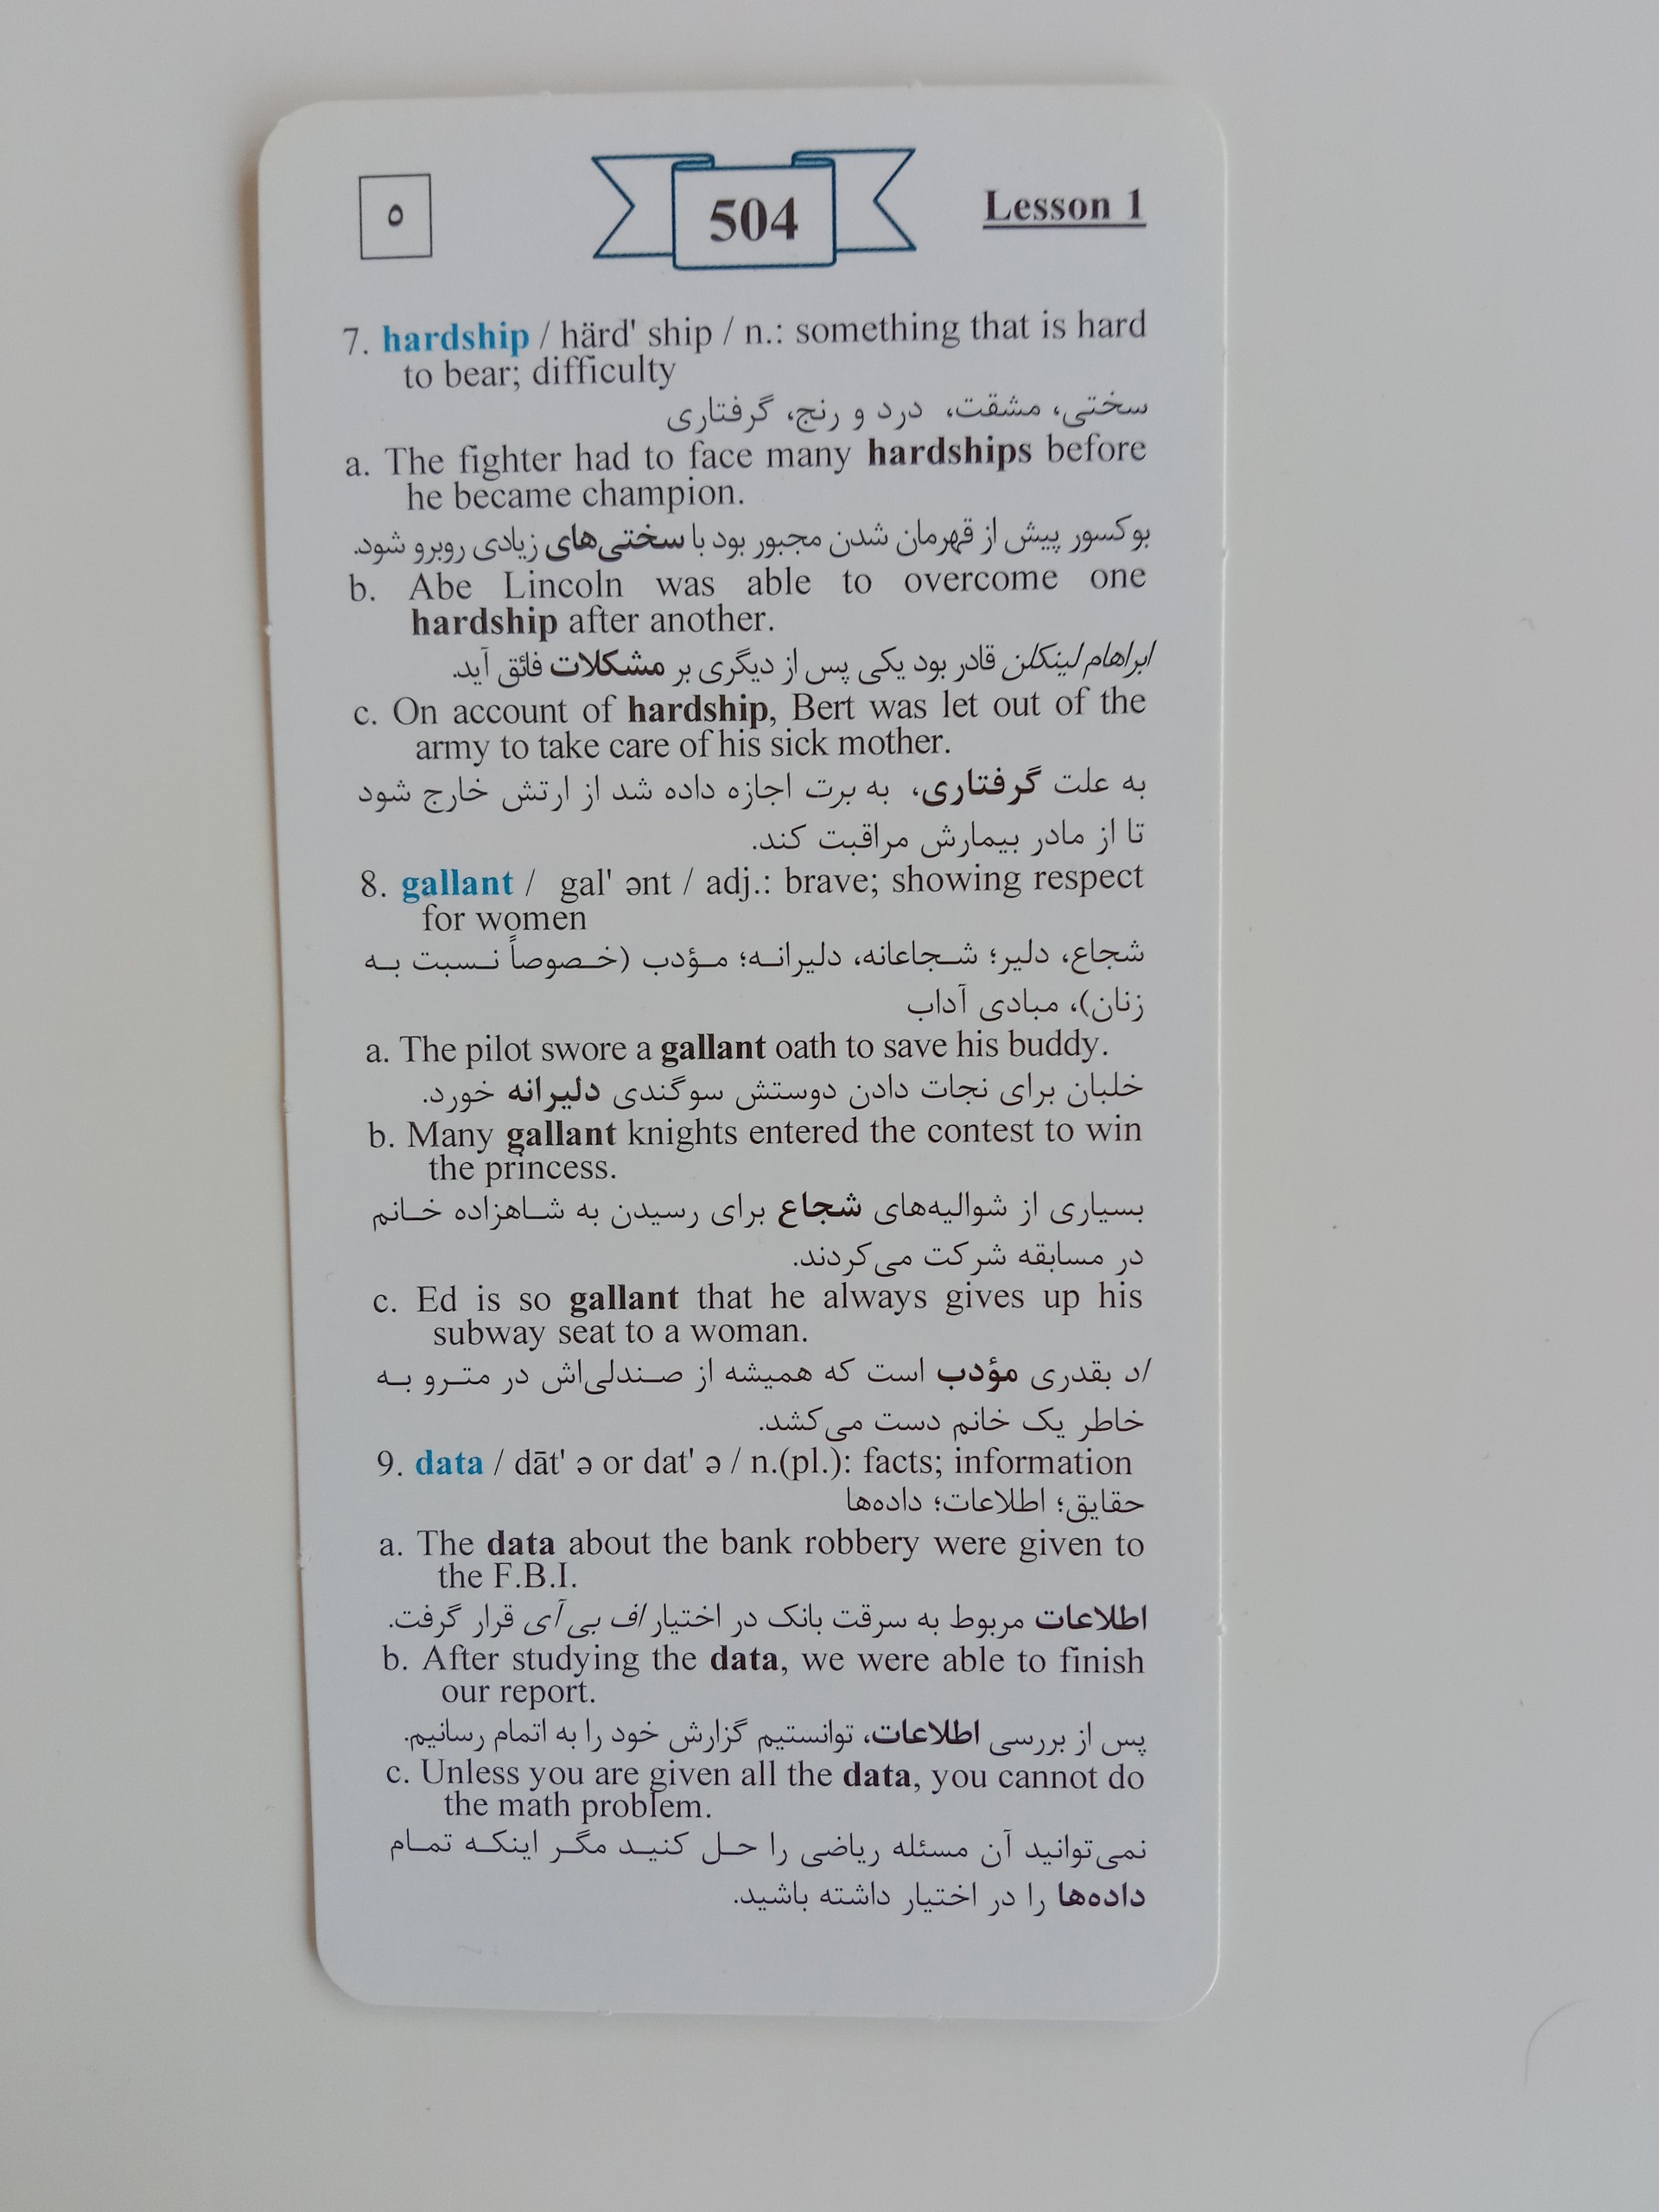 ۵
504
Lesson 1
7. hardship / härd' ship / n.: something that is hard
to bear; difficulty
سختی، مشقت، درد و رنج، گرفتاری
a. The fighter had to face many hardships before
he became champion.
بوکسور پیش از قهرمان شدن مجبور بود با سختی‌های زیادی روبرو شود.
b. Abe Lincoln was able to overcome one
hardship after another.
ابراهام لینکلن قادر بود یکی پس از دیگری بر مشکلات فائق آید.
c. On account of hardship, Bert was let out of the
army to take care of his sick mother.
به علت گرفتاری، به برت اجازه داده شد از ارتش خارج شود
تا از مادر بیمارش مراقبت کند.
8. gallant / gal' ənt / adj.: brave; showing respect
for women
شجاع، دلیر؛ شـجاعانه، دلیرانـه؛ مـؤدب (خـصوصاً نـسبت بـه
زنان)، مبادی آداب
a. The pilot swore a gallant oath to save his buddy.
خلبان برای نجات دادن دوستش سوگندی دلیرانه خورد.
b. Many gallant knights entered the contest to win
the princess.
بسیاری از شوالیه‌های شجاع برای رسیدن به شـاهزاده خـانم
در مسابقه شرکت می‌کردند.
c. Ed is so gallant that he always gives up his
subway seat to a woman.
اد بقدری مؤدب است که همیشه از صـندلی‌اش در متـرو بـه
خاطر یک خانم دست می‌کشد.
9. data / dāt' ə or dat' ə / n.(pl.): facts; information
حقایق؛ اطلاعات؛ داده‌ها
a. The data about the bank robbery were given to
the F.B.I.
اطلاعات مربوط به سرقت بانک در اختیار اف بی آی قرار گرفت.
b. After studying the data, we were able to finish
our report.
پس از بررسی اطلاعات، توانستیم گزارش خود را به اتمام رسانیم.
c. Unless you are given all the data, you cannot do
the math problem.
نمی‌توانید آن مسئله ریاضی را حـل کنیـد مگـر اینکـه تمـام
داده‌ها را در اختیار داشته باشید.